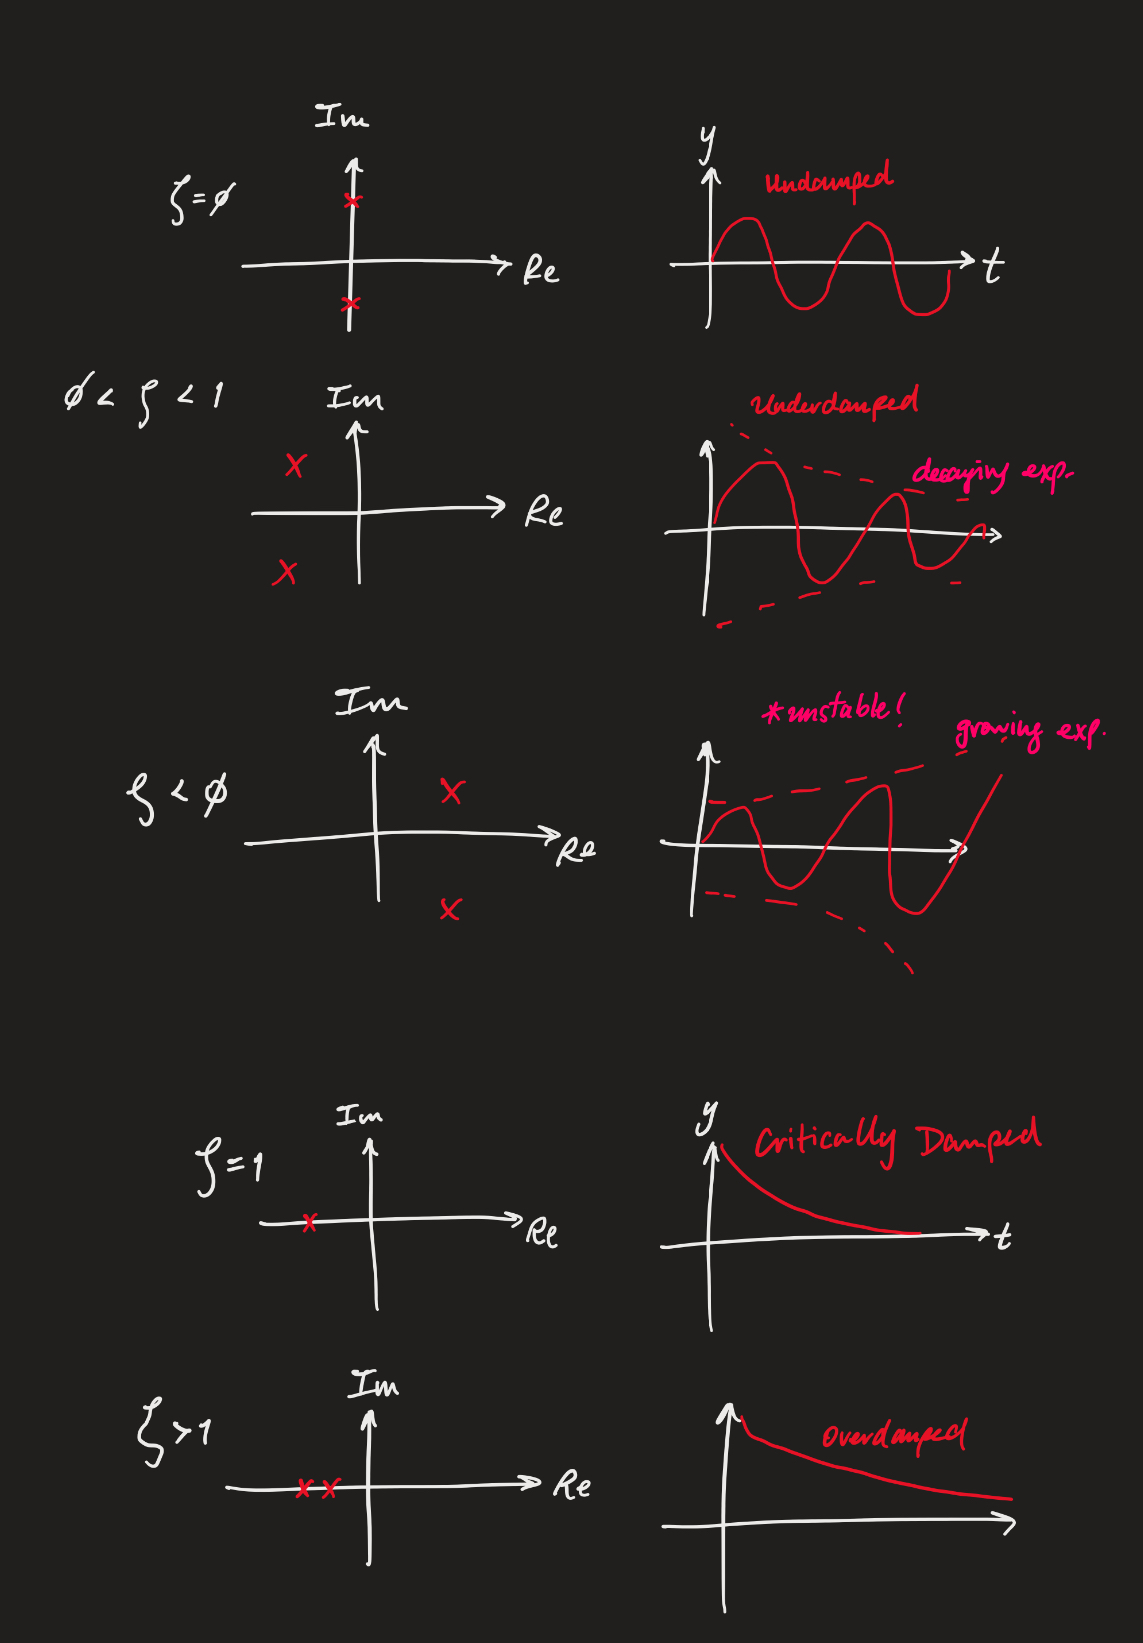 Im
ζ=∅
Re
y
Undamped
t
∅ < ζ < 1
Im
Re
Underdamped
decaying exp.
Im
ζ < ∅
Re
*unstable!
growing exp.
Im
ζ=1
Re
y
Critically Damped
t
Im
ζ>1
Re
Overdamped